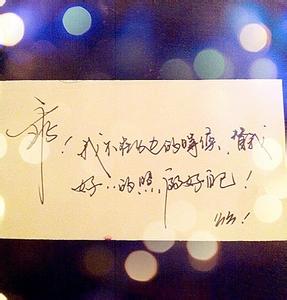 乖！我不在以也的时候，替我
好好的照顾好自己！